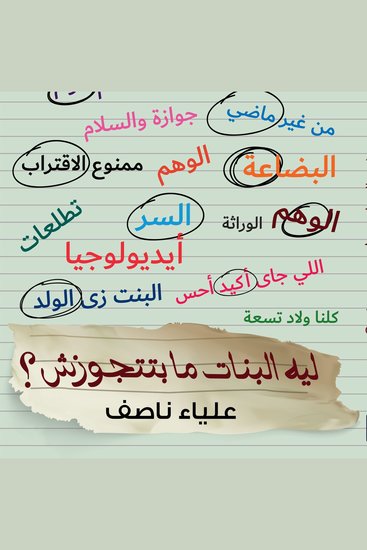 من غير ماضي
جوازة والسلام
البضاعة
الوهم
ممنوع الاقتراب
الوهم
الوراثة
السر
تطلعات
أيديولوجيا
اللي جاى أكيد أحسن
البنت زى الولد
كلنا ولاد تسعة
ليه البنات ما بتتجوزش؟
علياء ناصف